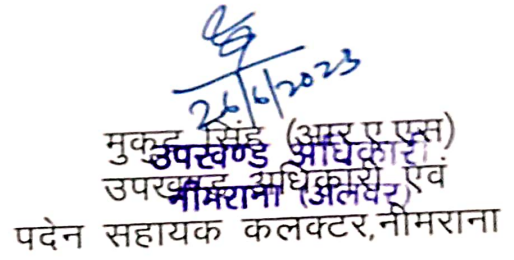 26/6/2023
मुकुट सिंह (आर ए एस)
उपखण्ड अधिकारी
उपखण्ड अधिकारी एवं
नीमराना (अलवर)
पदेन सहायक कलक्टर,नीमराना